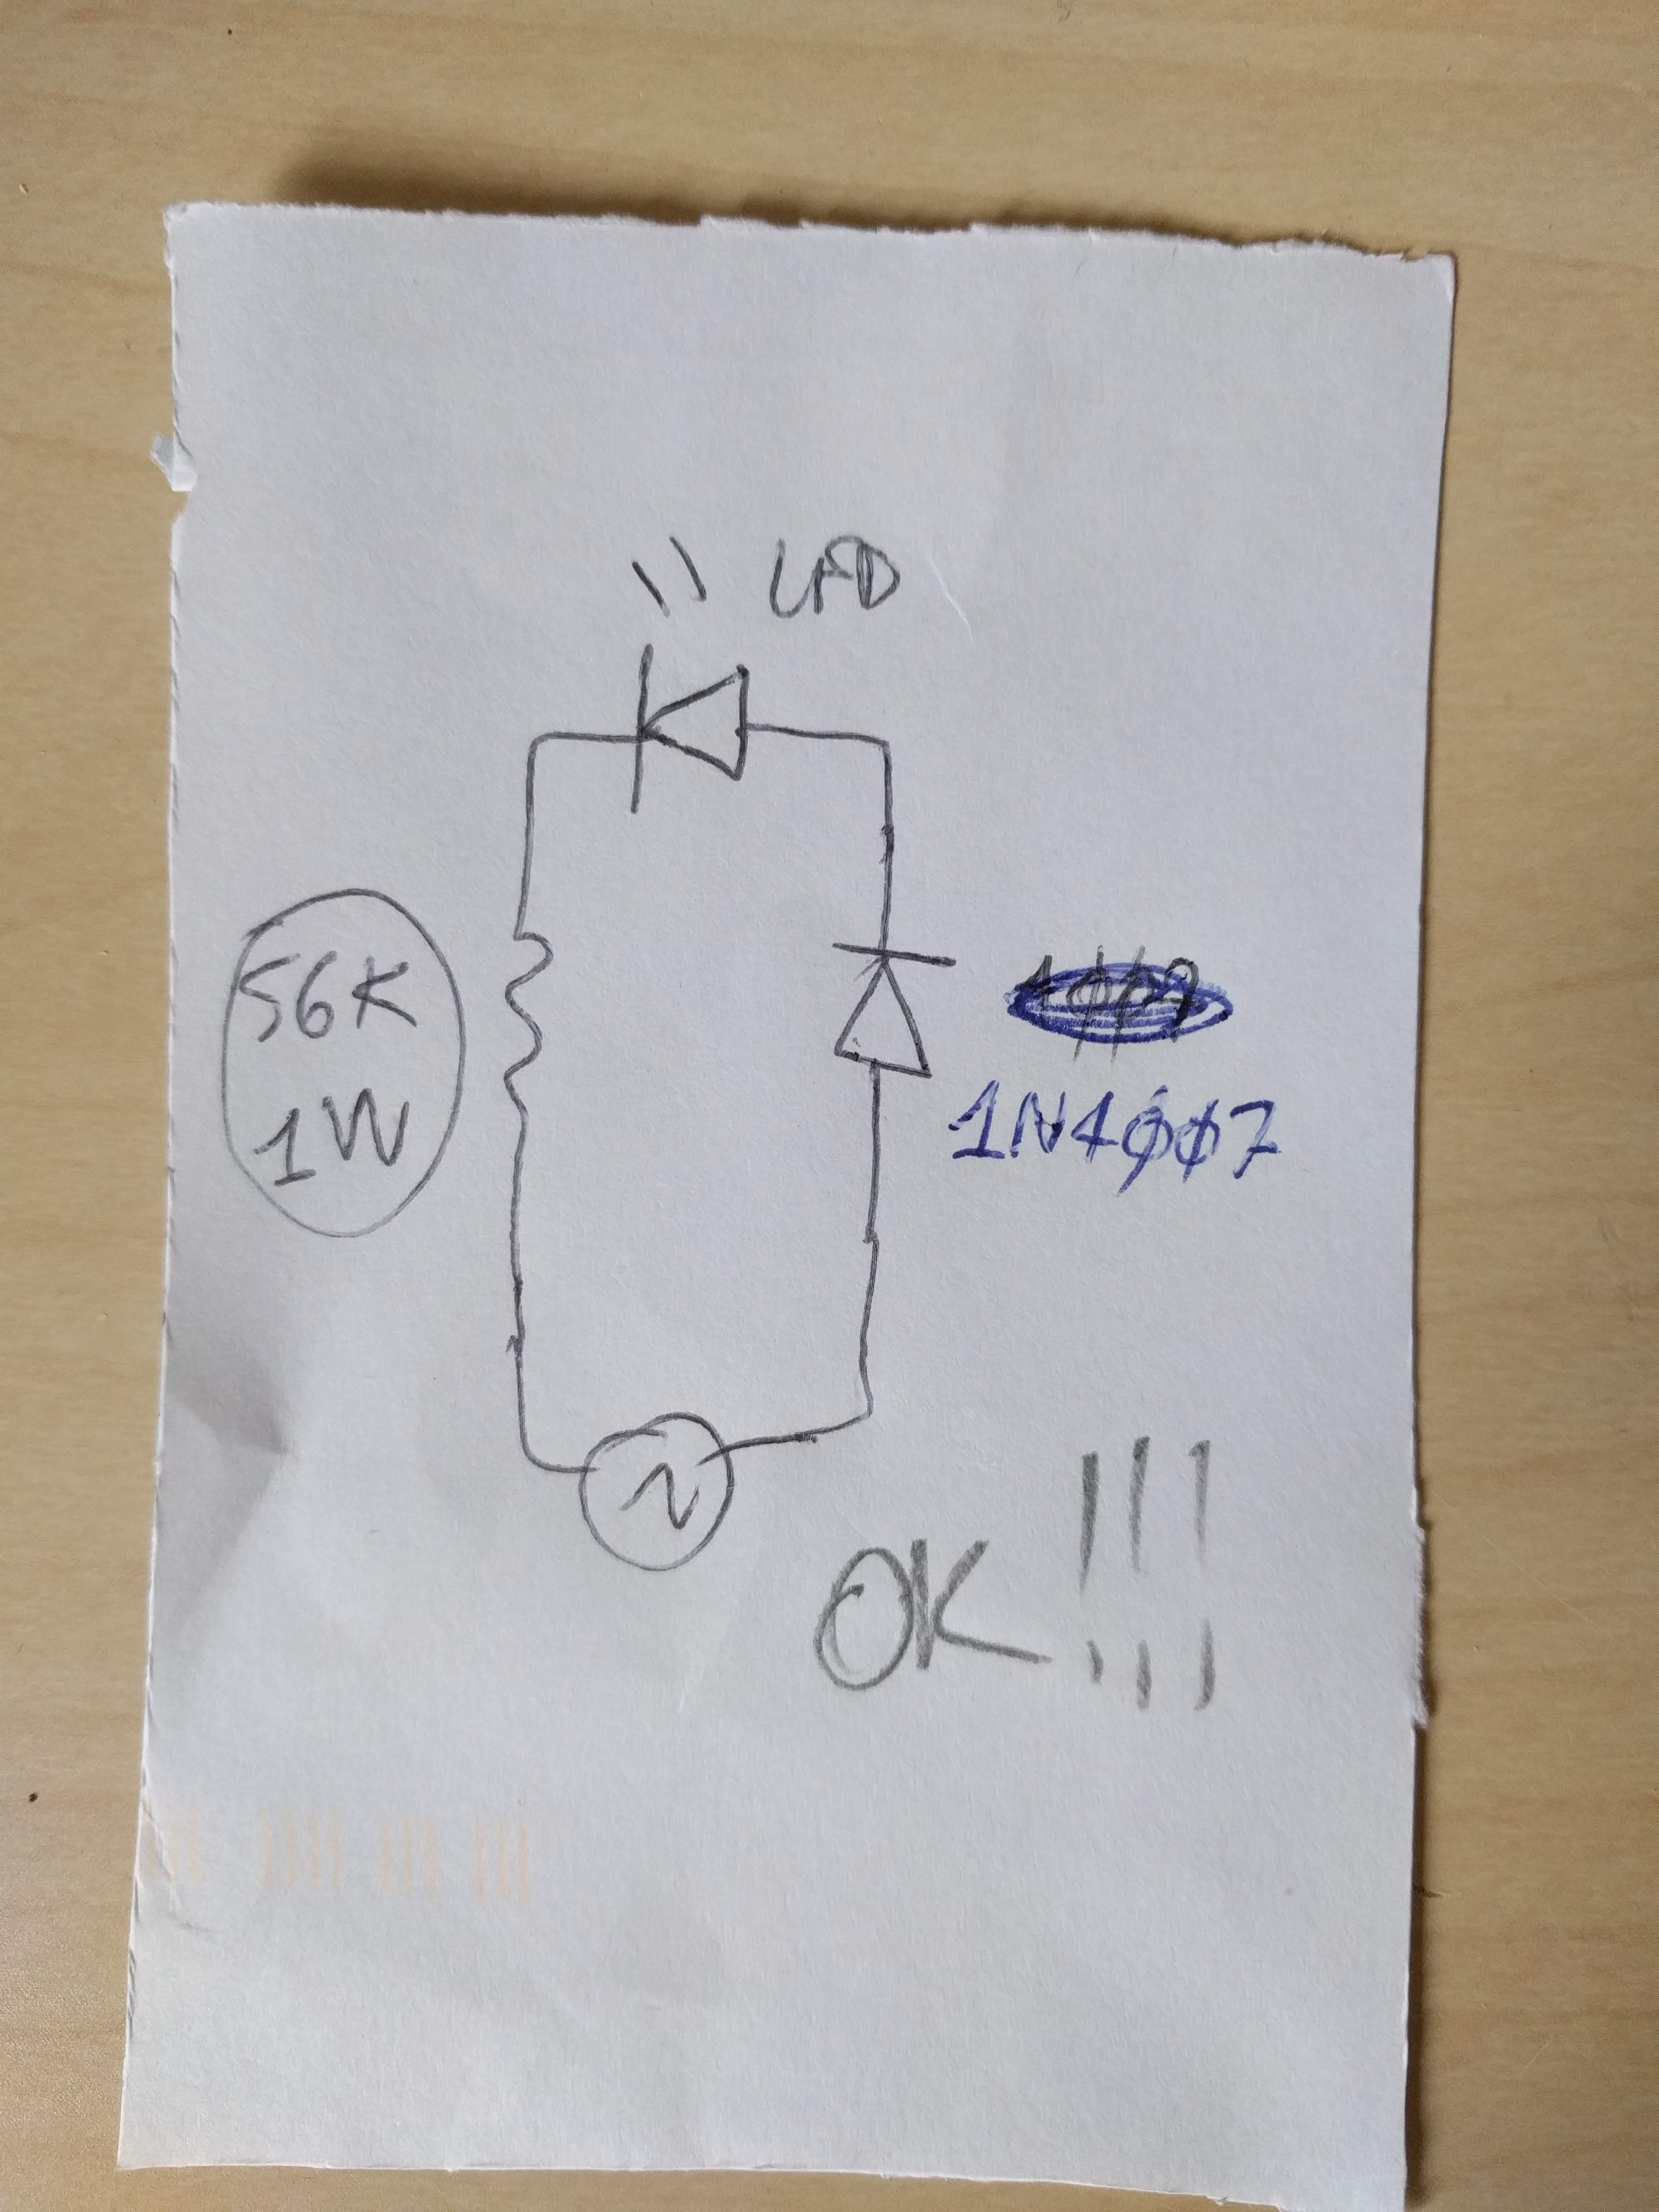 LED
56K
1W
1N4007
OK !!!